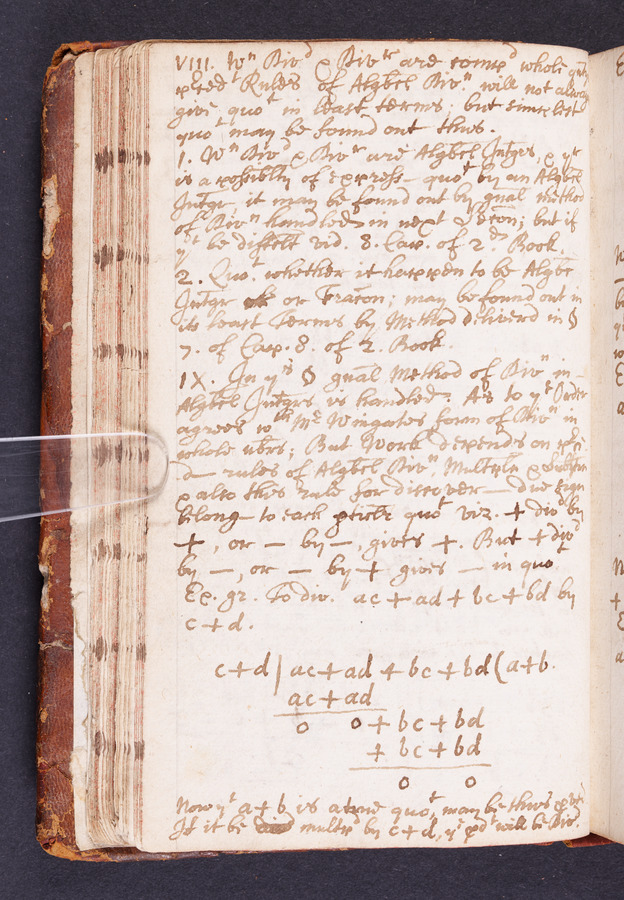 VIII. Wn Divd & Divr are compd whole qnty
pcedt Rules of Algbel Divn will not alway
give quot in least terms; but simplest
quot may be found out thus.
1. Wn Divd & Divr are Algbel Intgrs, & yr
is a possiblty of express— quot by an Algbel
Intgr, it may be found out by gnal Method
of Divn handled in next Section; but if
yt be difficlt vid. 8. Cap. of 2d Book.
2. Quot whether it happen to be Algbc
Intgr or Fracon; may be found out in
its least Terms by Method deliverd in §
7. of Cap. 8. of 2. Book.
IX. In ys § gnal Method of Divn in
Algbel Intgrs is handled. As to ye Order
agrees wth Mr Wingates form of Divn in
whole nbrs; But Work depends on
— rules of Algbel Divn, Multipln & Subtrn
& also this rule for discover— due sign
belong— to each quot viz. + div by
+, or — by —, gives +. But + divd
by —, or — by + gives — in quot
Ex. gr. To div. ac + ad + bc + bd by
c + d.
c + d | ac + ad + bc + bd (a + b.
ac + ad
0 0 + bc + bd
+ bc + bd
0 0
Now yt a + b is a true quot, may be thus
If it be multipd by c + d, ye pdt will be Divd